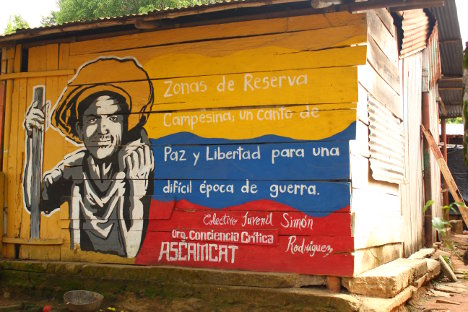 Zonas de Reserva
Campesina; un canto de
Paz y Libertad para una
difícil época de guerra.
Colectivo Juvenil Simón
Rodríguez
Org. Conciencia Crítica
ASCAMCAT